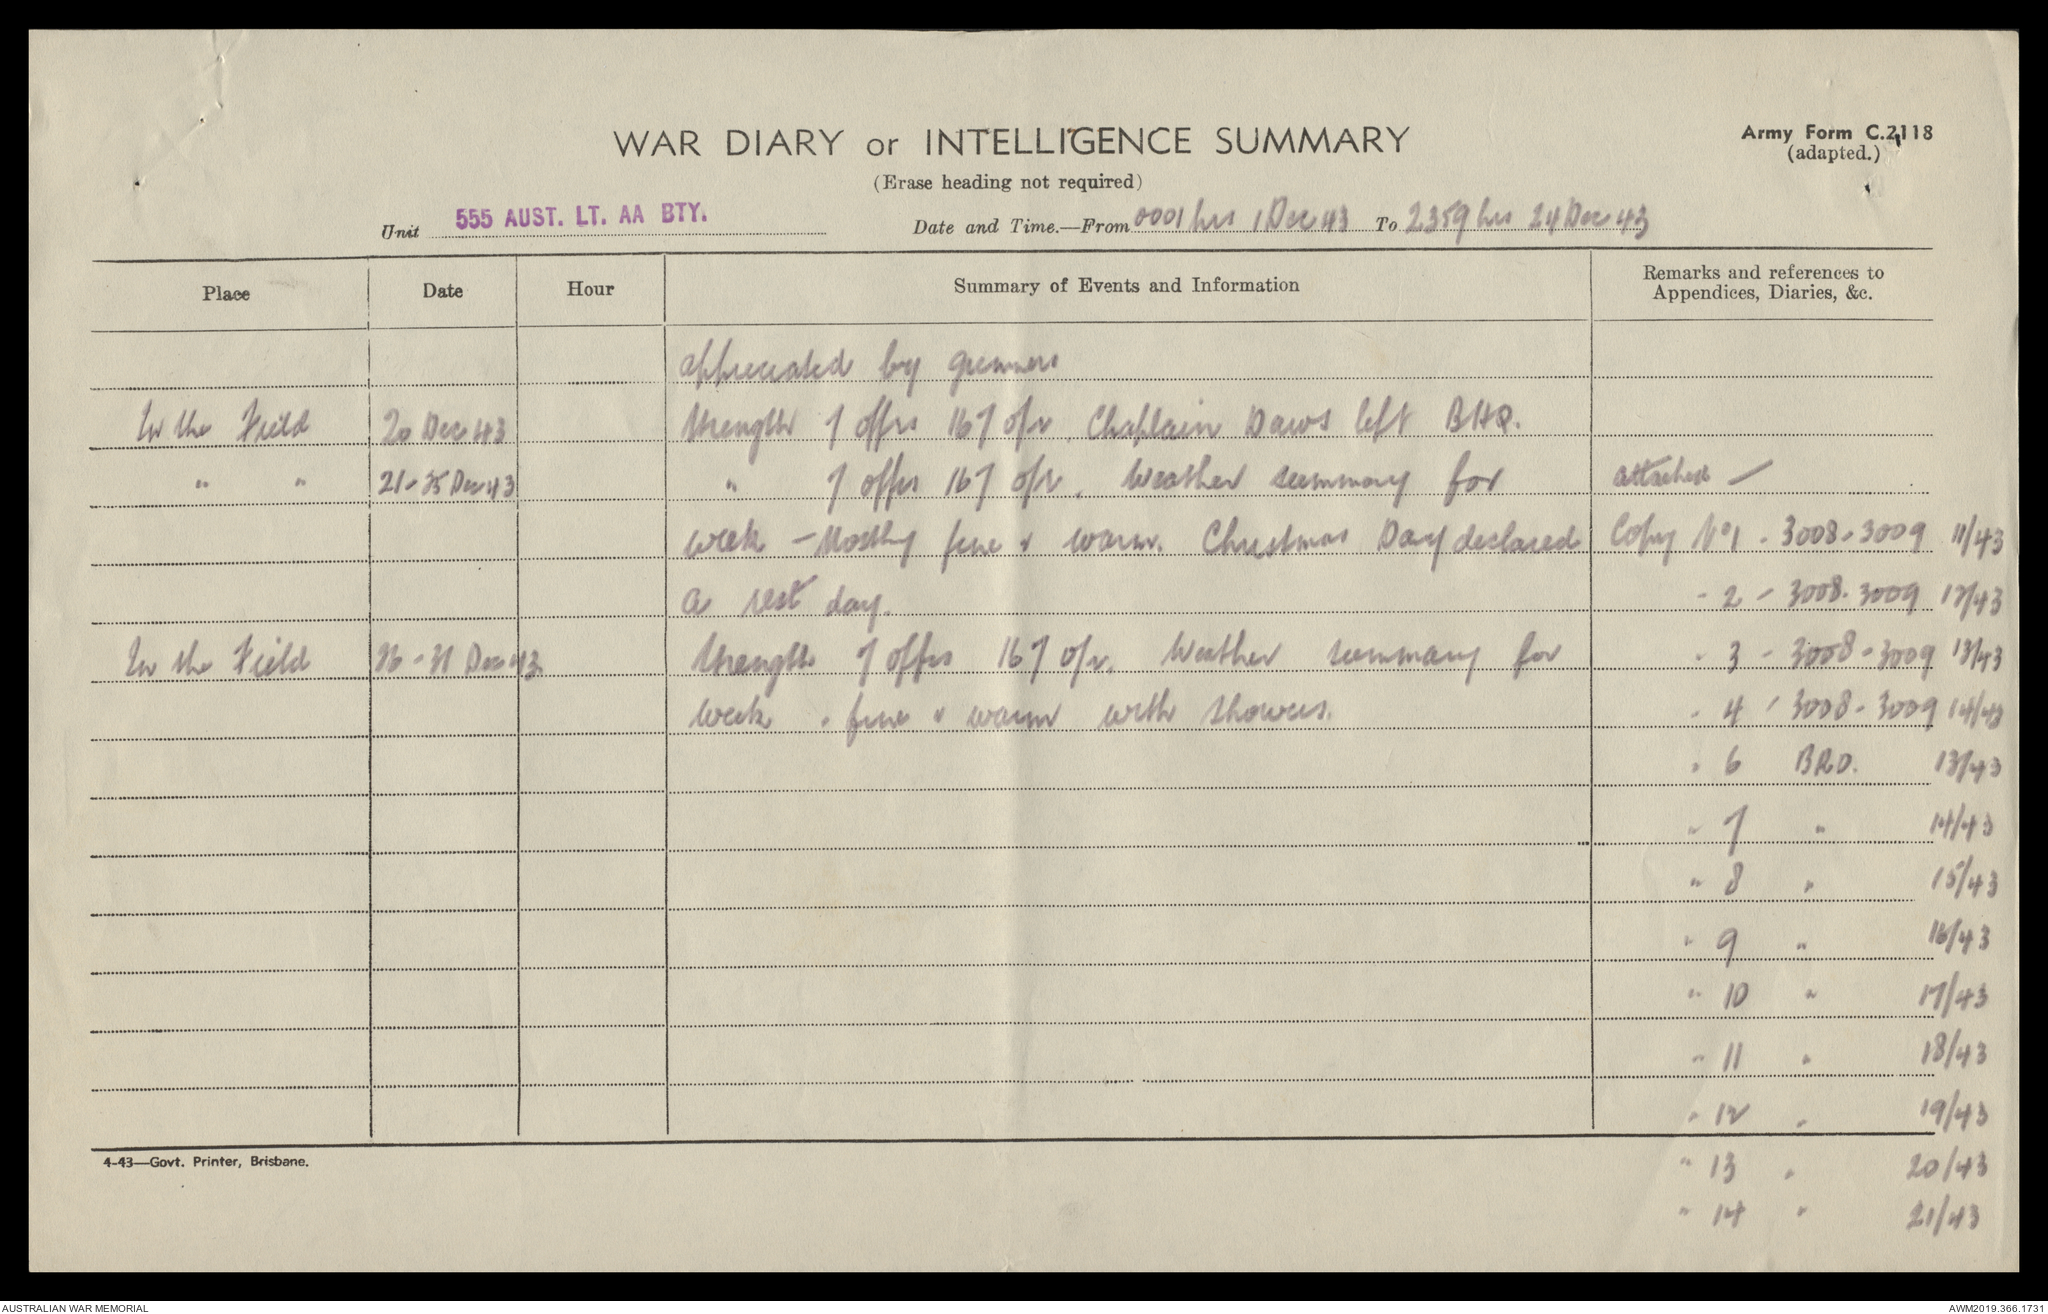 WAR DIARY or INTELLIGENCE SUMMARY
Army Form C.2118
(adapted.)
(Erase heading not required)
Unit 555 AUST. LT. AA BTY.
Date and Time.—From 0001 hrs 1 Dec 43 To 2359 hrs 24 Dec 43
Place Date Hour Summary of Events and Information Remarks and references to
Appendices, Diaries, &c.
appreciated by gunners
In the Field 20 Dec 43 Strength 7 offrs 167 o/r. Chaplain Daws left BHQ.
" " 21-25 Dec 43 " 7 offrs 167 o/r. Weather summary for attached —
week - Mostly fine & warm. Christmas Day declared Copy No 1 - 3008-3009 11/43
a rest day. " 2 - 3008-3009 12/43
In the Field 26-31 Dec 43 Strength 7 offrs 167 o/r. Weather summary for " 3 - 3008-3009 13/43
week - fine & warm with showers. " 4 - 3008-3009 14/43
" 6 BRO. 13/43
" 7 " 14/43
" 8 " 15/43
" 9 " 16/43
" 10 " 17/43
" 11 " 18/43
" 12 " 19/43
4-43—Govt. Printer, Brisbane.
" 13 " 20/43
" 14 " 21/43
AUSTRALIAN WAR MEMORIAL
AWM2019.366.1731